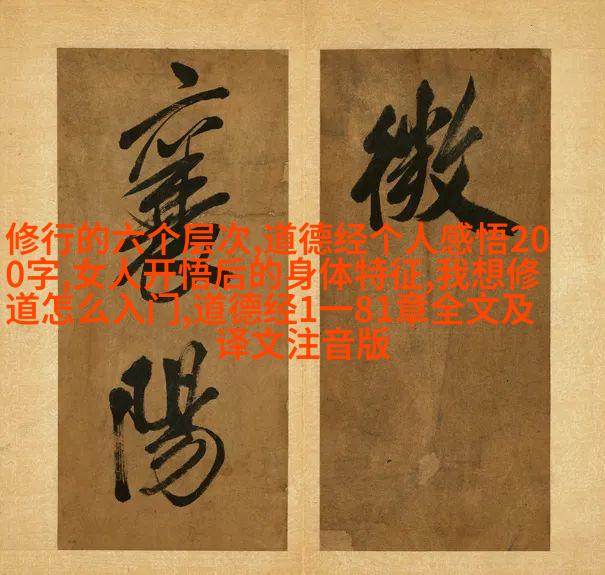 微
襄陽
修行的六个层次,道德经个人感悟20
0字,女人开悟后的身体特征,我想修
道怎么入门,道德经1一81章全文及
译文注音版